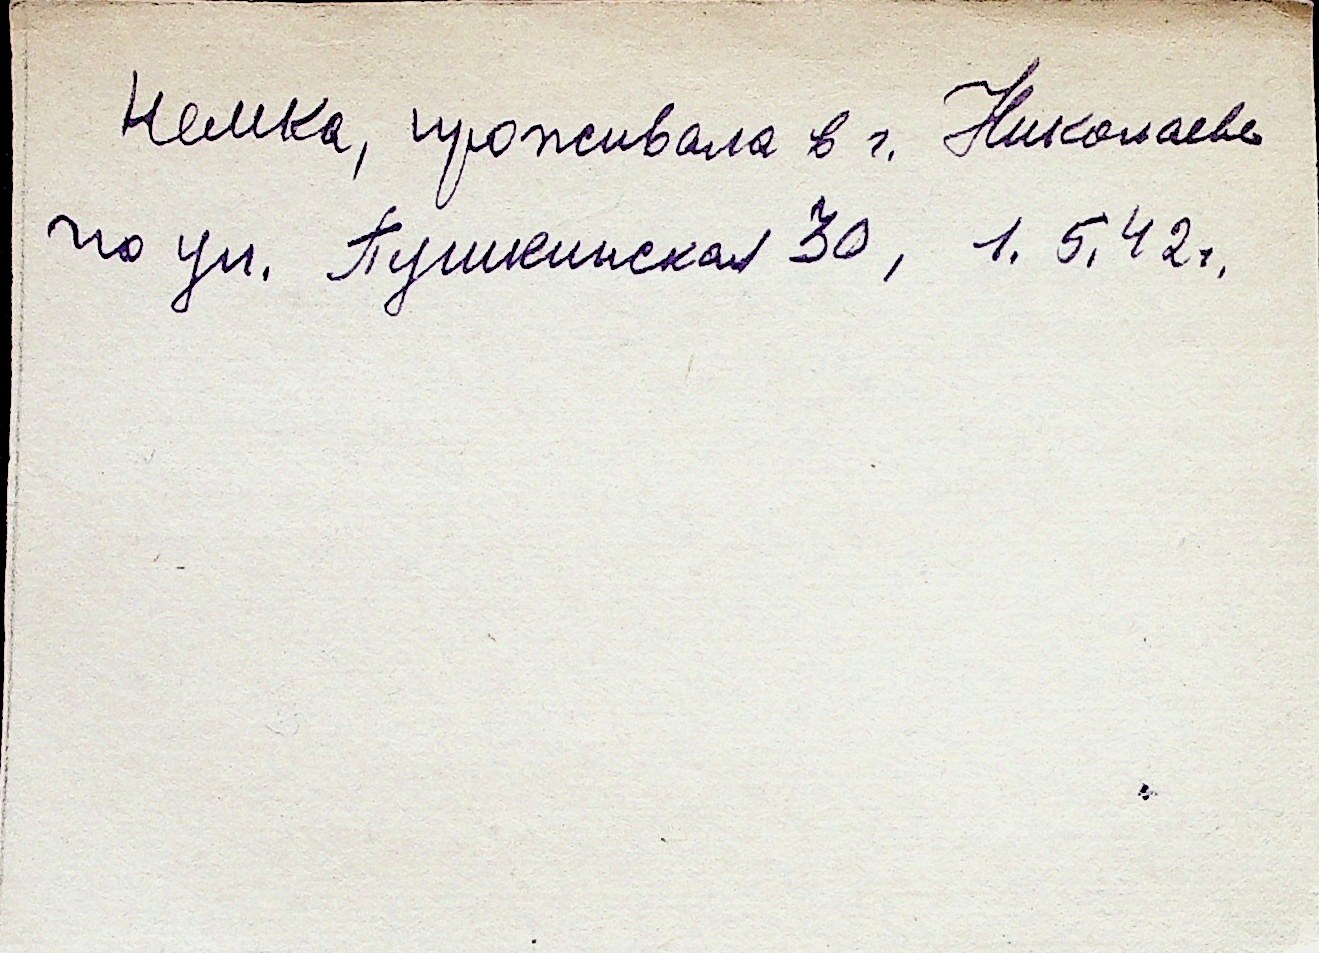 Немка, проживала в г. Николаеве
по ул. Пушкинская 30, 1.5.42 г.